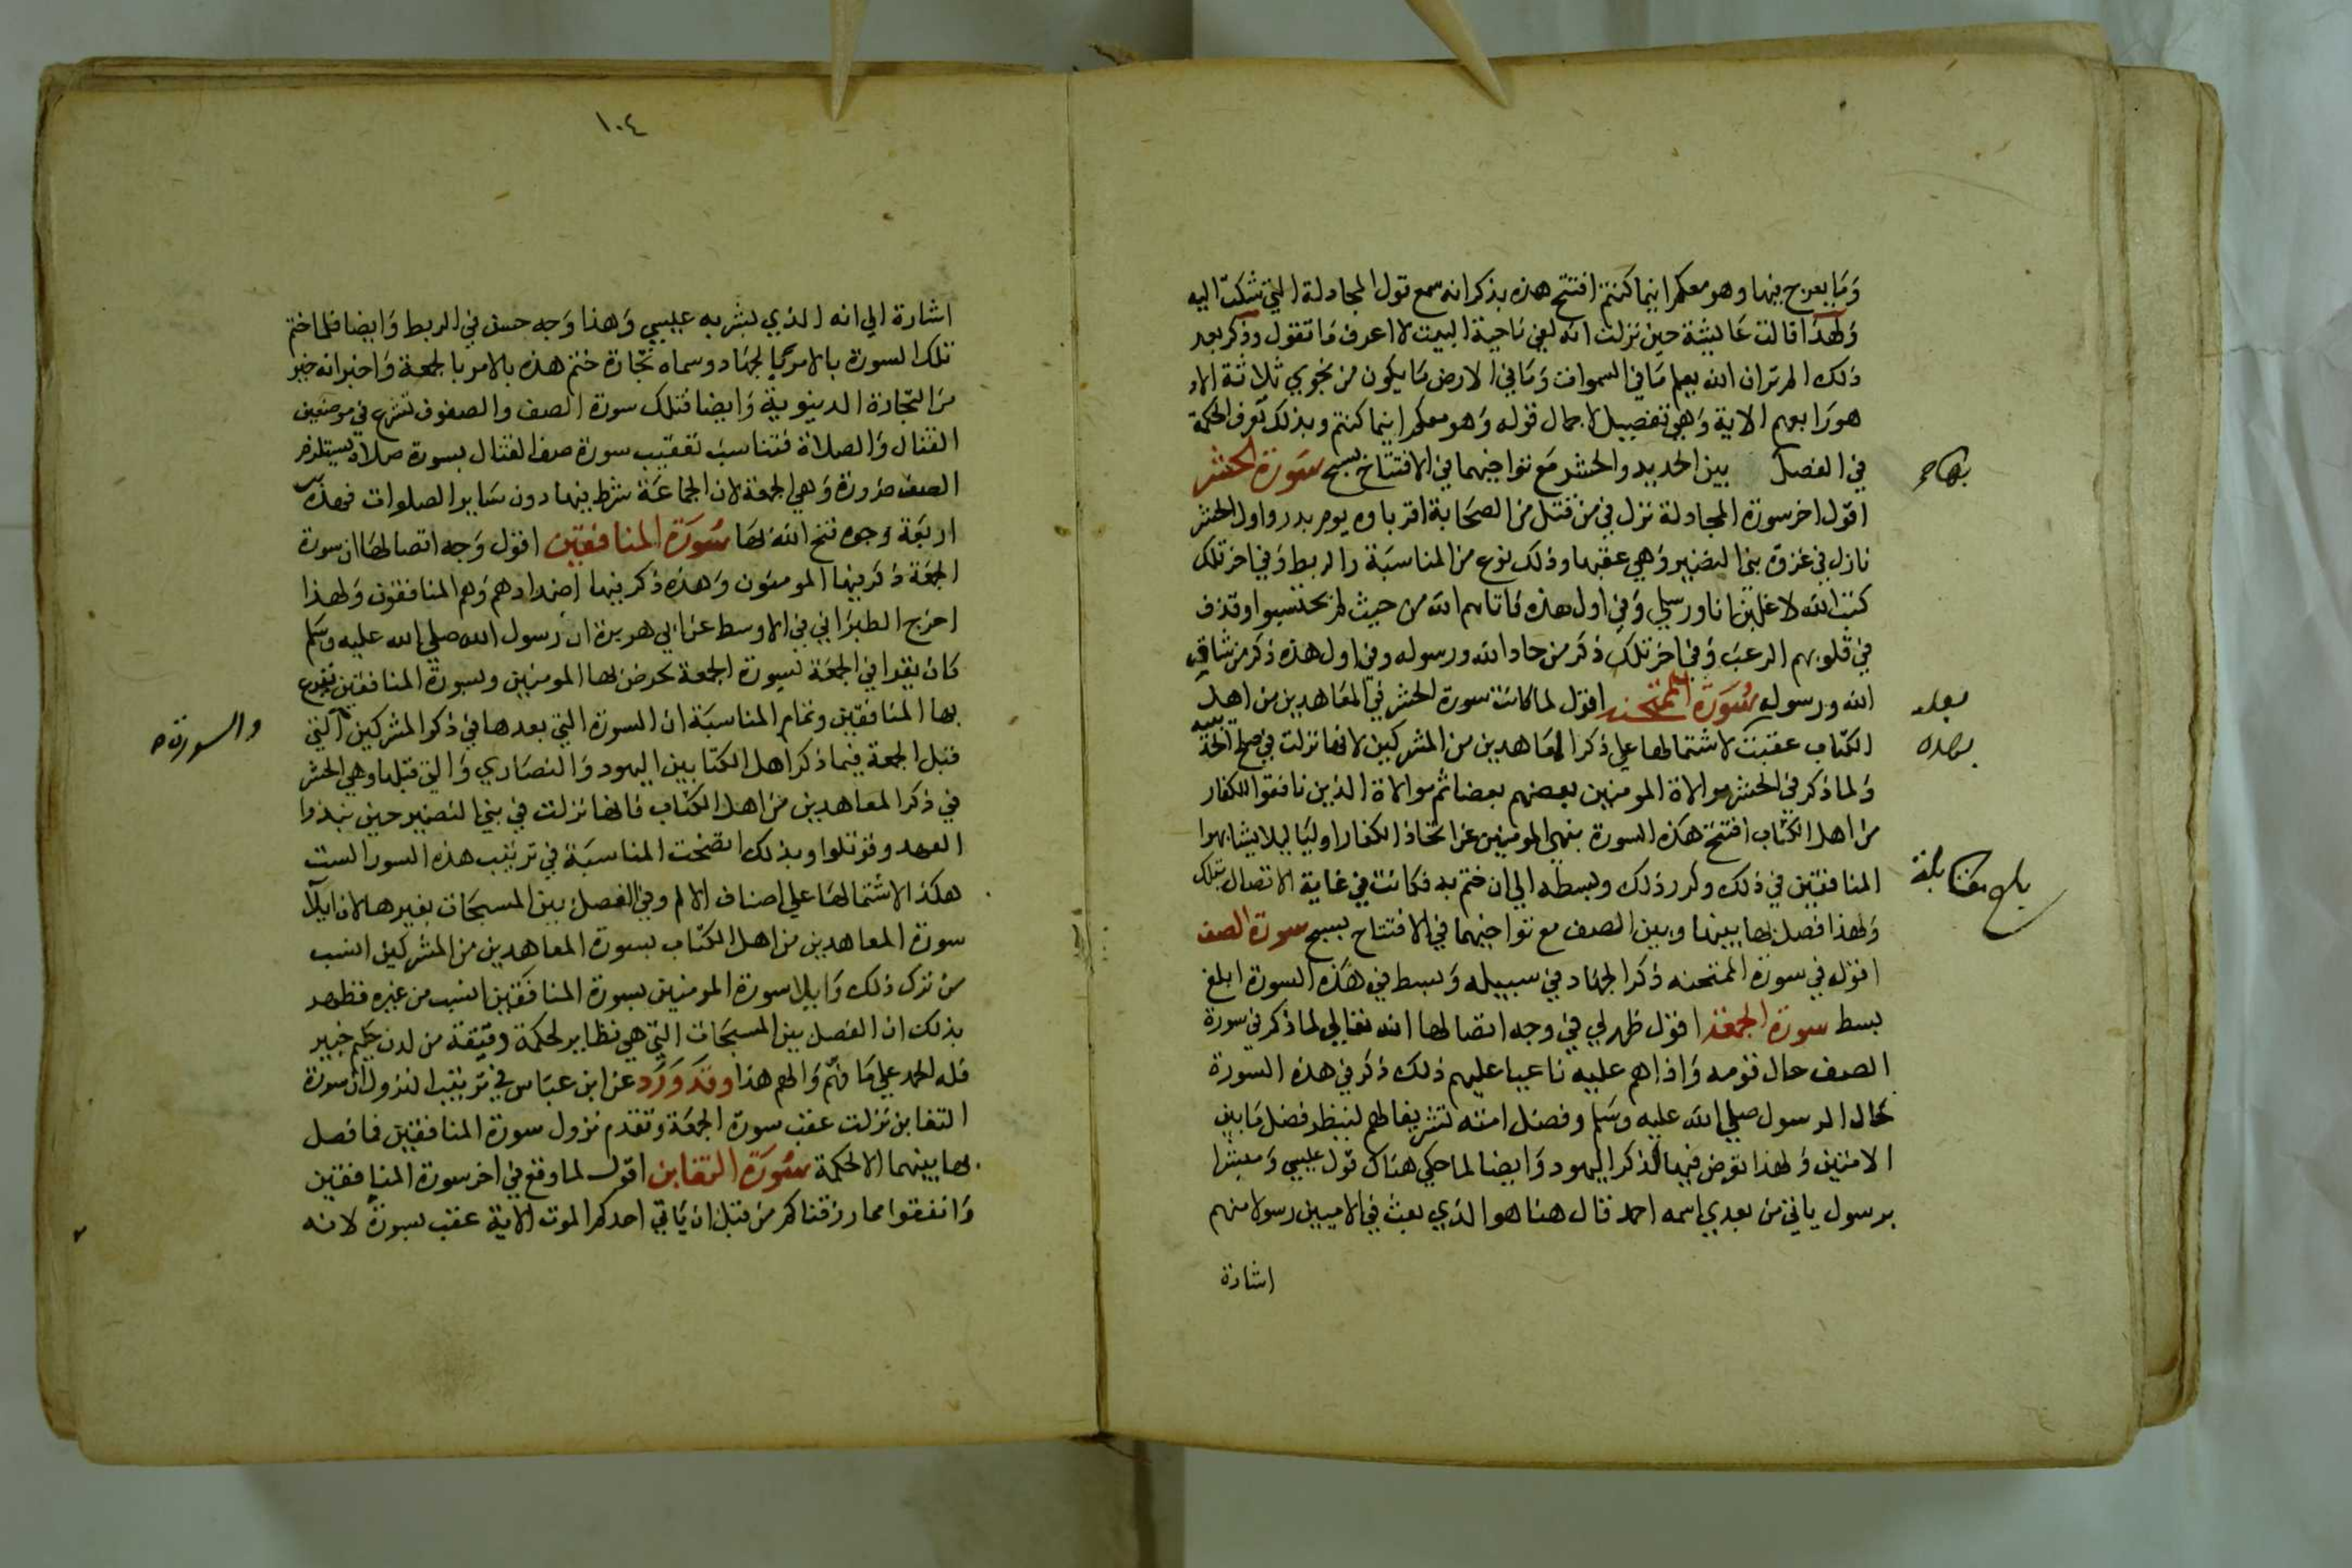 وما يعرج فيها وهو معكم اينما كنتم افتتح هذه بذكر انه سمع قول المجادلة التي شكت اليه
ولهذا قالت عايشة حين نزلت انه لفي ناحية البيت لا اعرف ما تقول وذكر بعد
ذلك الم تر ان الله يعلم ما في السموات وما في الارض ما يكون من نجوي ثلاثة الا
هو رابعهم الاية وهي تفصيل لاجمال قوله وهو معكم اينما كنتم وبذلك تعرف الحكمة
في الفصل بين الحديد والحشر مع تواخيهما في الافتتاح بسبح سورة الحشر
بها ح
اقول اخر سورة المجادلة نزل في من قتل من الصحابة اقرباوه يوم بدر واول الحشر
نازل في غزوة بني النضير وهي عقبها وذلك نوع من المناسبة والربط وفي اخر تلك
كتب الله لاغلبن انا ورسلي وفي اول هذه فاتاهم الله من حيث لم يحتسبوا وقذف
في قلوبهم الرعب وفي اخر تلك ذكر من حاد الله ورسوله وفي اول هذه ذكر من شاق
الله ورسوله سورة الممتحنة اقول لما كانت سورة الحشر في المعاهدين من اهل
الكتاب عقبت لاشتمالها علي ذكر المعاهدين من المشركين لانها نزلت في صلح الحديبية
ولما ذكر في الحشر موالاة المومنين بعضهم بعضا ثم موالاة الذين نافقوا للكفار
من اهل الكتاب افتتح هذه السورة بنهي المومنين عن اتخاذ الكفار اوليا ليلا يشابهوا
المنافقين في ذلك وكرر ذلك وبسطه الي ان ختم به فكانت في غاية الاتصال بتلك
بلغ مقابلة
ولهذا فصل بها بينها وبين الصف مع تواخيهما في الافتتاح بسبح سورة الصف
اقول في سورة الممتحنه ذكر الجهاد في سبيله وبسط في هذه السورة ابلغ
بسط سورة الجمعة اقول ظهر لي في وجه اتصالها انه تعالي لما ذكر في سورة
الصف حال قومه واذاهم عليه ناعيا عليهم ذلك ذكر في هذه السورة
حال الرسول صلي الله عليه وسلم وفضل امته تشريفا لهم لينظر فضل ما بين
الامتين ولهذا تعرض فيها لذكر اليهود وايضا لما حكي هناك قول عيسي ومبشرا
برسول ياتي من بعدي اسمه احمد قال هنا هو الذي بعث في الاميين رسولا منهم
اشارة
١٠٤
اشارة الي انه الذي بشر به عيسي وهذا وجه حسن في الربط وايضا فلما ختم
تلك السورة بالامر بالجهاد وسماه تجارة ختم هذه بالامر بالجمعة واخبر انه خير
من التجارة الدنيوية وايضا فتلك سورة الصف والصفوف تشرع في موضعين
القتال والصلاة فتناسب تعقيب سورة صف القتال بسورة صلاة تستلزم
الصف ضرورة وهي الجمعة لان الجماعة شرط فيها دون سائر الصلوات فهذه
اربعة وجوه فتح الله بها سورة المنافقين اقول وجه اتصالها ان سورة
الجمعة ذكر فيها المومنون وهذه ذكر فيها اضدادهم وهم المنافقون ولهذا
اخرج الطبراني في الاوسط عن ابي هريرة ان رسول الله صلي الله عليه وسلم
كان يقرا في الجمعة بسورة الجمعة يحرض بها المومنين وبسورة المنافقين يقرع
بها المنافقين وتمام المناسبة ان السورة التي بعدها في ذكر المشركين التي
والسورة
قبل الجمعة فيها ذكر اهل الكتابين اليهود والنصاري والتي قبلها وهي الحشر
في ذكر المعاهدين من اهل الكتاب فانها نزلت في بني النضير حين نبذوا
العهد وقوتلوا وبذلك اتضحت المناسبة في ترتيب هذه السور الست
هكذا لاشتمالها علي اصناف الامم وفي الفصل بين المسبحات بغيرها لان ايلا
سورة المعاهدين من اهل الكتاب بسورة المعاهدين من المشركين انسب
من ترك ذلك وايلا سورة المومنين بسورة المنافقين انسب من غيره فظهر
بذلك ان الفصل بين المسبحات التي هي نظاير لحكمة دقيقة من لدن حكيم خبير
فله الحمد علي ما فهم والهم هذا وقد ورد عن ابن عباس في ترتيب النزول ان سورة
التغابن نزلت عقب سورة الجمعة وتقدم نزول سورة المنافقين فما فصل
بها بينهما الا لحكمة سورة التغابن اقول لما وقع في اخر سورة المنافقين
وانفقوا مما رزقناكم من قبل ان ياتي احدكم الموت الاية عقب بسورة لانه